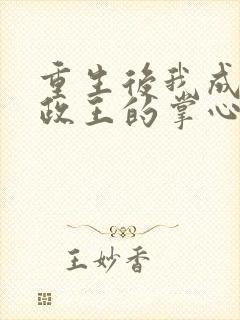 重生後我成
政王的掌心
王妙香